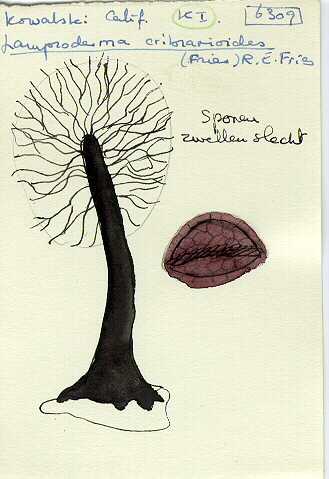 Kowalski Calif. K I. 6309
Lamproderma cribrarioides
(Fries) R.E. Fries
Sporen
zwellen slecht